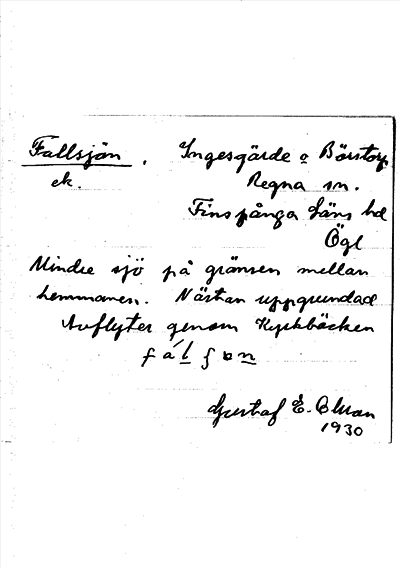 Fallsjön. Ingesgärde o Börstorp
ek. Regna sn.
Finspånga läns hd
Ögl
Mindre sjö på gränsen mellan
hemmanen. Nästan uppgrundad
Avflyter genom Kyrkbäcken
fálʃɷn
Gustaf E. Olsson
1930